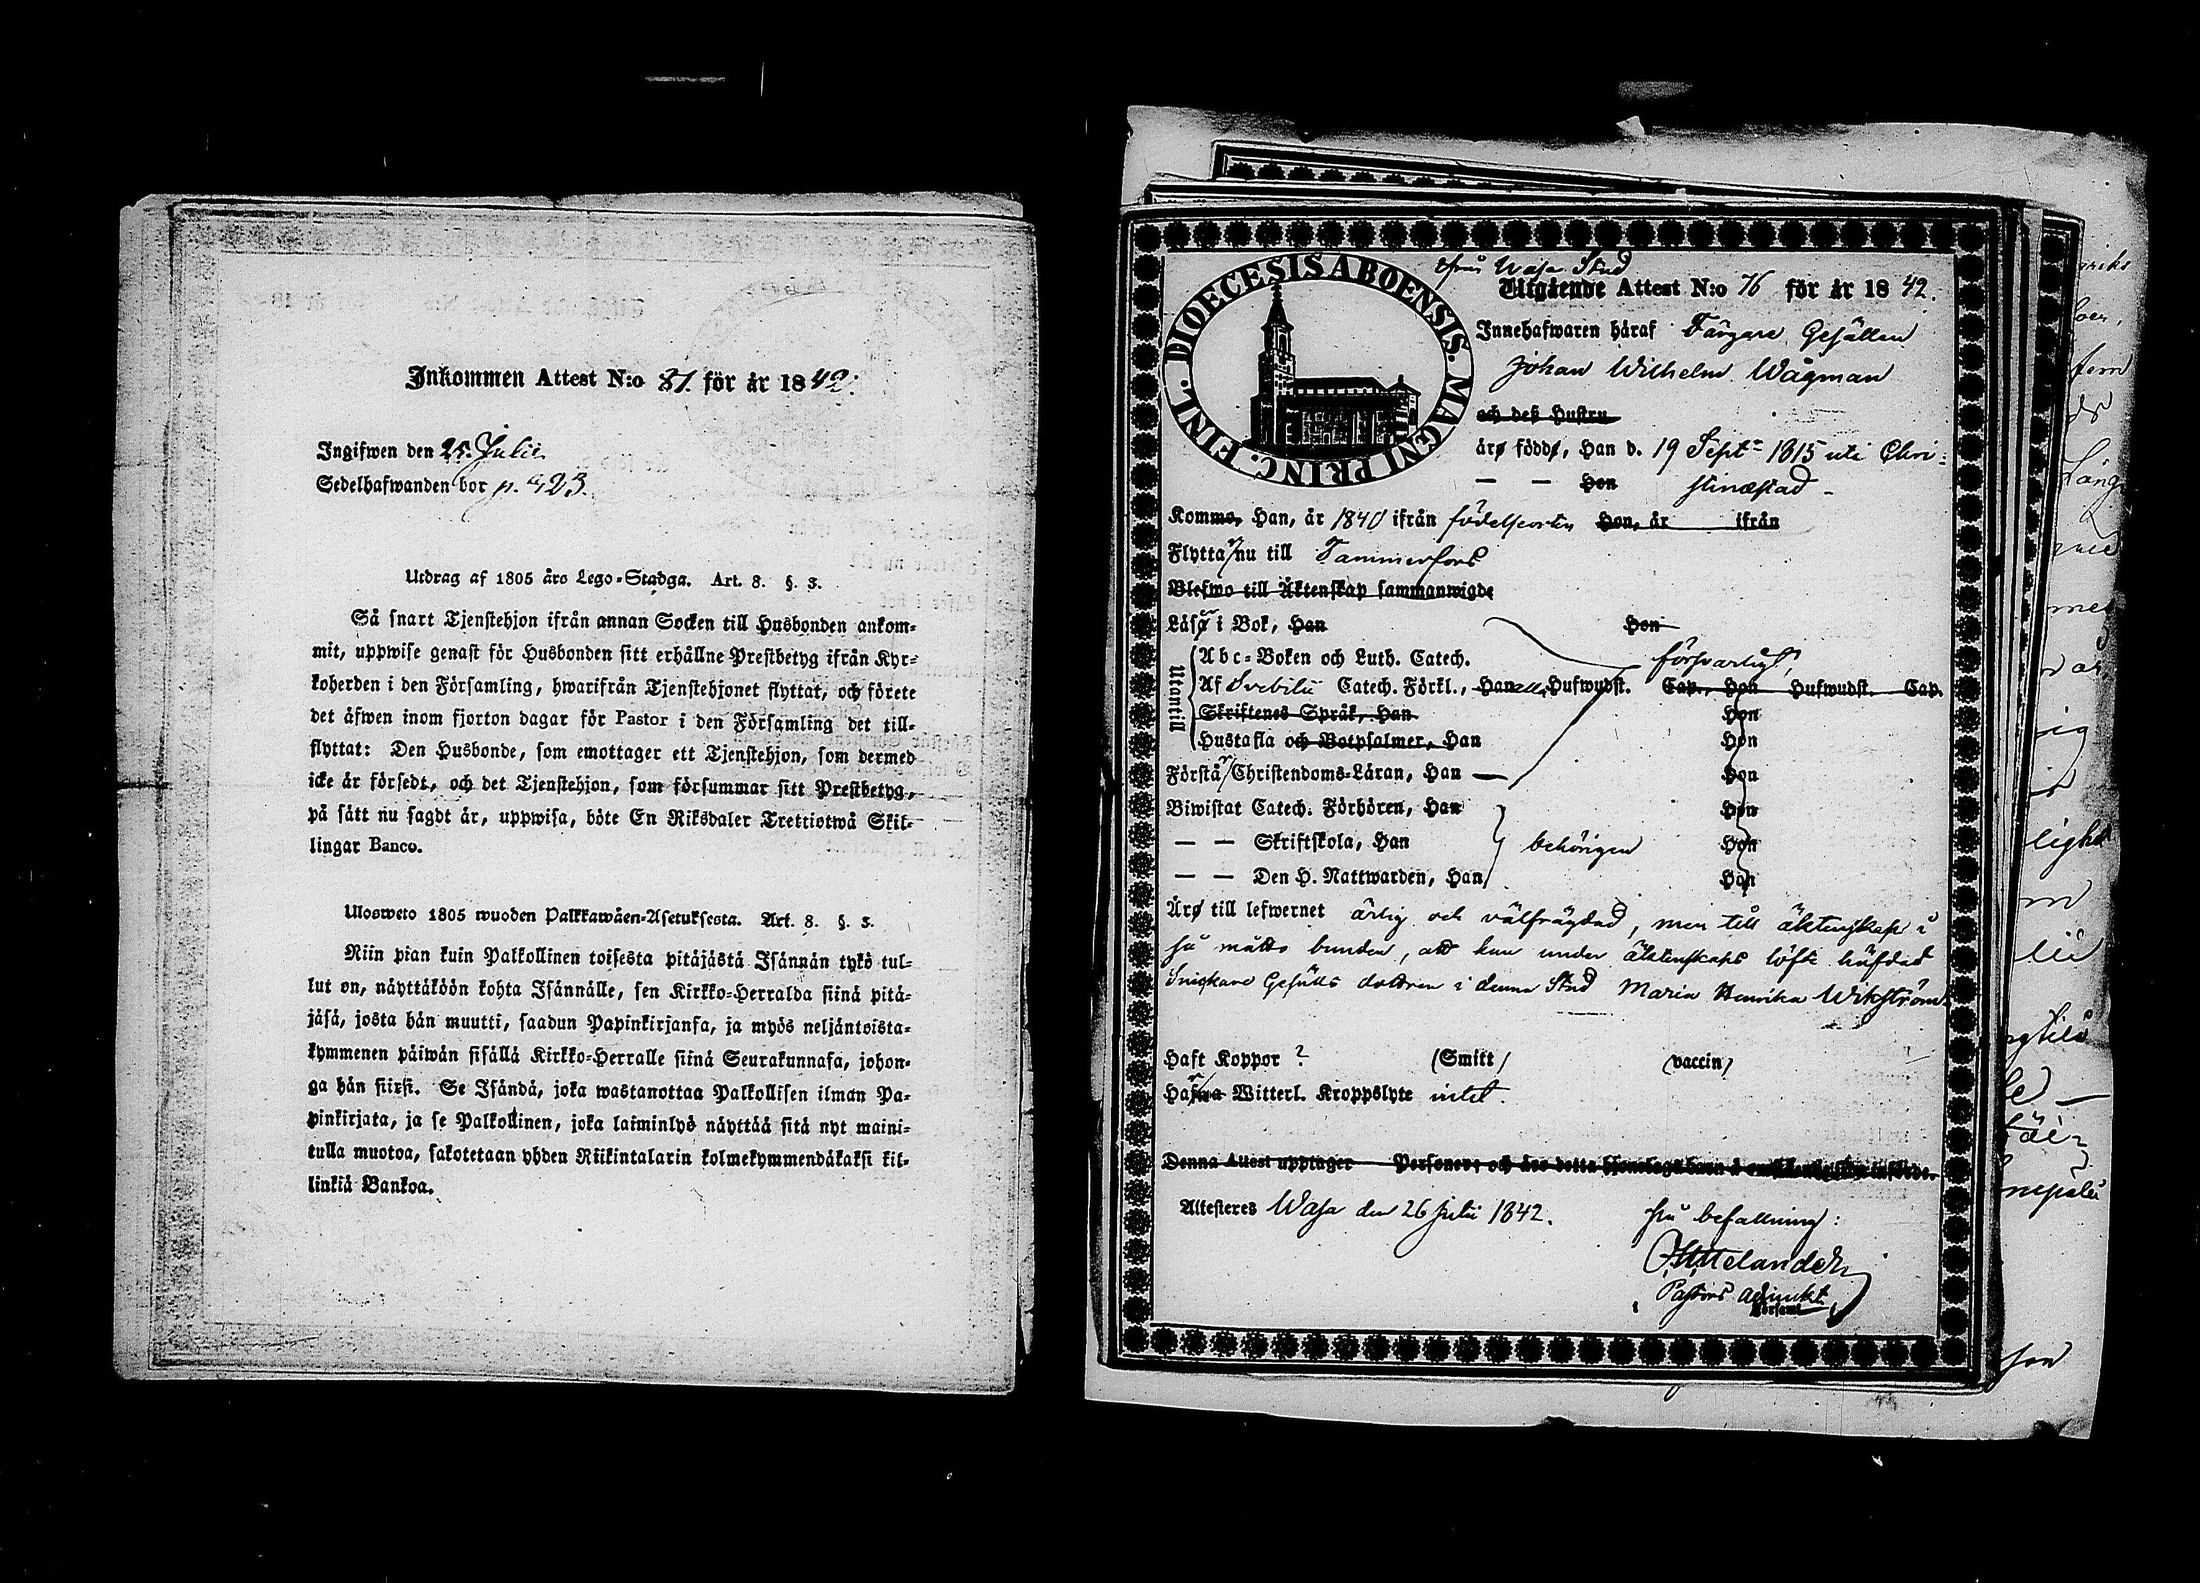 Inkommen Attest N:o 81. för år 1842.
Ingifwen den 25. Julii
Sedelhafwanden bor p. 423.
Utdrag af 1805 års Lego-Stadga. Art. 8. §. 3.
Så snart Tjenstehjon ifrån annan Socken till Husbonden ankom-
mit, uppwise genast för Husbonden sitt erhållne Prestbetyg ifrån Kyr-
koherden i den Församling, hwarifrån Tjenstehjonet flyttat, och förete
det äfwen inom fjorton dagar för Pastor i den Församling det till-
flyttat: Den Husbonde, som emottager ett Tjenstehjon, som dermed
icke är försedt, och det Tjenstehjon, som försummar sitt Prestbetyg,
på sätt nu sagdt är, uppwisa, böte En Riksdaler Trettiotwå Skil-
lingar Banco.
Ulosweto 1805 wuoden Palkkawäen-Asetuksesta. Art. 8. §. 3.
Niin pian kuin Palkollinen toisesta pitäjästä Isännän tykö tul-
lut on, näyttäköön kohta Isännälle, sen Kirkko-Herralda siinä pitä-
jäsä, josta hän muutti, saadun Papinkirjansa, ja myös neljäntoista-
kymmenen päiwän sisällä Kirkko-Herralle siinä Seurakunnasa, johon-
ga hän siirsi. Se Isändä, joka wastanottaa Palkollisen ilman Pa-
pinkirjata, ja se Palkollinen, joka laiminlyö näyttää sitä nyt maini-
tulla muotoa, sakotetaan yhden Riikintalarin kolmekymmendäkaksi kil-
linkiä Bankoa.
DIOECESIS ABOENSIS. MAGNI PRINC. FINL.
ifrån Wasa Stad
Utgående Attest N:o 76 för år 1842.
Innehafwaren häraf Färgare Gesällen
Johan Wilhelm Wågman
och deß Hustru
äro födde, Han d. 19 Sept. 1815 uti Chri-
— — Hon stinæstad
Komme, Han, år 1840 ifrån födelseorten Hon, år ifrån
Flyttar nu till Tammerfors
Blefwo till Äktenskap sammanwigde
Läsa i Bok, Han Hon
Utantill
Abc-Boken och Luth. Catech. försvarligt,
Af Svebilii Catech. Förkl., Han alla Hufwudst. Cap., Hon Hufwudst. Cap.
Skriftenes Språk, Han Hon
Hustafla och Botpsalmer, Han Hon
Förstår Christendoms-Läran, Han Hon
Biwistat Catech. Förhören, Han Hon
— — Skriftskola, Han behörigen Hon
— — Den H. Nattwarden, Han Hon
Äro till lefwernet ärlig och välfrägdad, men till äktenskap i
så måtto bunden, att han under äktenskaps löfte häfdat
Snickare Gesälls dottren i denna Stad Maria Henrika Wikström.
Haft Koppor ? (Smitt) (vaccin)
Hafwa Witterl. Kroppslyte intet.
Denna Attest upptager Personer; och äro detta hjonelags barn å omstående sida införde.
Attesteres Wasa den 26 Julii 1842. på befallning:
Pastors adjunkt.
Församl.